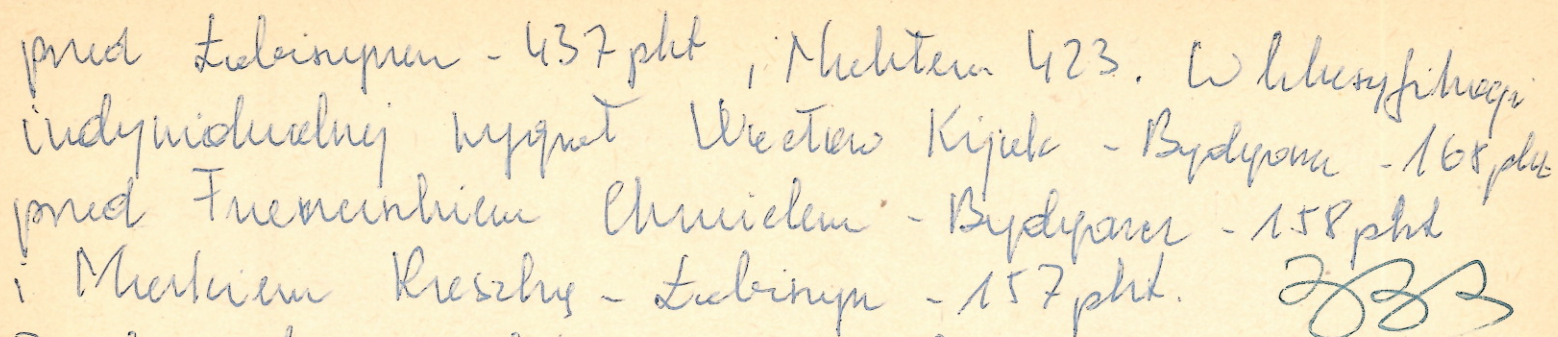 przed Łabiszynem - 437 pkt, i Nakłem 423. W klasyfikacji
indywidualnej wygrał Wacław Kijek - Bydgoszcz - 168 pkt
przed Franciszkiem Chmielem - Bydgoszcz - 158 pkt
i Markiem Kreszką - Łabiszyn - 157 pkt.